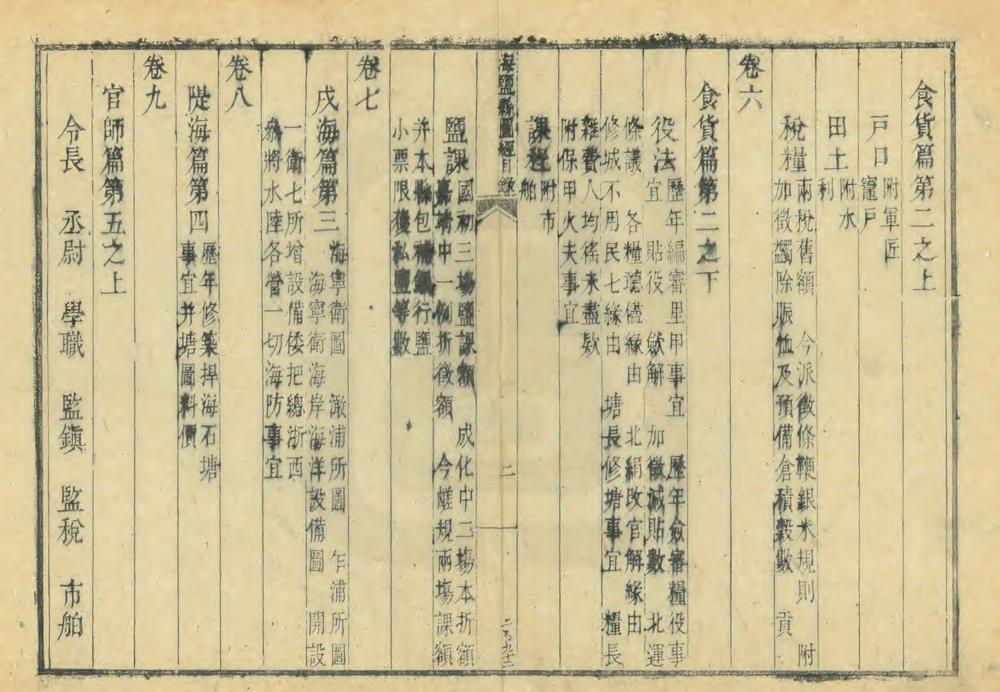 食貨篇第二之上
戶口 附軍匠
竈戶
田土 附水
利
稅糧 兩稅舊額 今派徵條鞭銀米規則 附
加徵蠲除賑恤及預備倉積穀數 貢
卷六
食貨篇第二之下
役法 歷年編審里甲事宜 歷年僉審糧役事
宜 貼役 斂解 加徵減貼數 北運
條議 各糧聴僐緣由 北絹改官解緣由
修城不用民七緣由 塘長修塘事宜 糧長
雜費人均徭未盡欵
附保甲火夫事宜
課程 附市
舶
海鹽縣圖經目錄
二
鹽課 國初三塲鹽課額 成化中二塲本折額
嘉靖中一例折徵額 今嵯規兩塲課額
并本縣包補鈔行鹽
小票限獲私鹽等數
卷七
戍海篇第三 海寧衛圖 澉浦所圖 乍浦所圖
海寧衛海岸海洋設備圖 開設
一衛七所增設備倭把總浙西
叅將水陸各營一切海防事宜
卷八
隄海篇第四 歷年修築捍海石塘
事宜并塘圖料價
卷九
官師篇第五之上
令長 丞尉 學職 監鎮 監稅 市舶